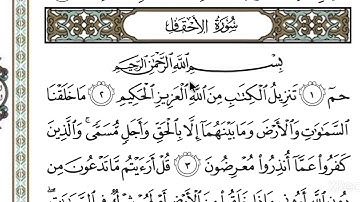 سُورَةُ الأَحْقَافِ
بِسْمِ ٱللَّهِ ٱلرَّحْمَٰنِ ٱلرَّحِيمِ
حمٓ ۝١ تَنزِيلُ ٱلْكِتَٰبِ مِنَ ٱللَّهِ ٱلْعَزِيزِ ٱلْحَكِيمِ ۝٢ مَا خَلَقْنَا
ٱلسَّمَٰوَٰتِ وَٱلْأَرْضَ وَمَا بَيْنَهُمَآ إِلَّا بِٱلْحَقِّ وَأَجَلٍ مُّسَمًّى ۚ وَٱلَّذِينَ
كَفَرُوا۟ عَمَّآ أُنذِرُوا۟ مُعْرِضُونَ ۝٣ قُلْ أَرَءَيْتُم مَّا تَدْعُونَ مِن
دُونِ ٱللَّهِ أَرُونِى مَاذَا خَلَقُوا۟ مِنَ ٱلْأَرْضِ أَمْ لَهُمْ شِرْكٌ فِى ٱلسَّمَٰوَٰتِ ۖ